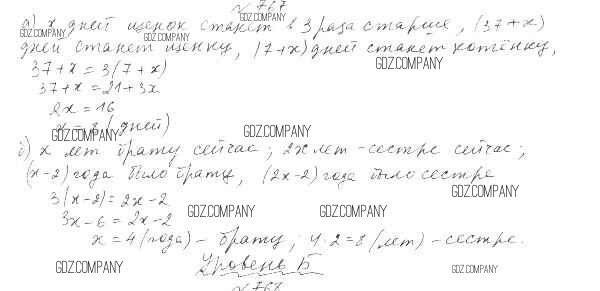 № 767
а) x дней щенок станет в 3 раза старше, (37+x)
GDZ.COMPANY
дней станет щенку, (7+x) дней станет котёнку,
37+x = 3(7+x)
GDZ.COMPANY
37+x = 21+3x
2x = 16
x = 8 (дней)
GDZ.COMPANY GDZ.COMPANY
б) x лет брату сейчас; 2x лет - сестре сейчас;
(x-2) года было брату, (2x-2) года было сестре
GDZ.COMPANY
3(x-2) = 2x-2
GDZ.COMPANY GDZ.COMPANY
3x-6 = 2x-2
x = 4 (года) - брату; 4·2=8 (лет) - сестре.
Уровень Б
GDZ.COMPANY GDZ.COMPANY
№ 768